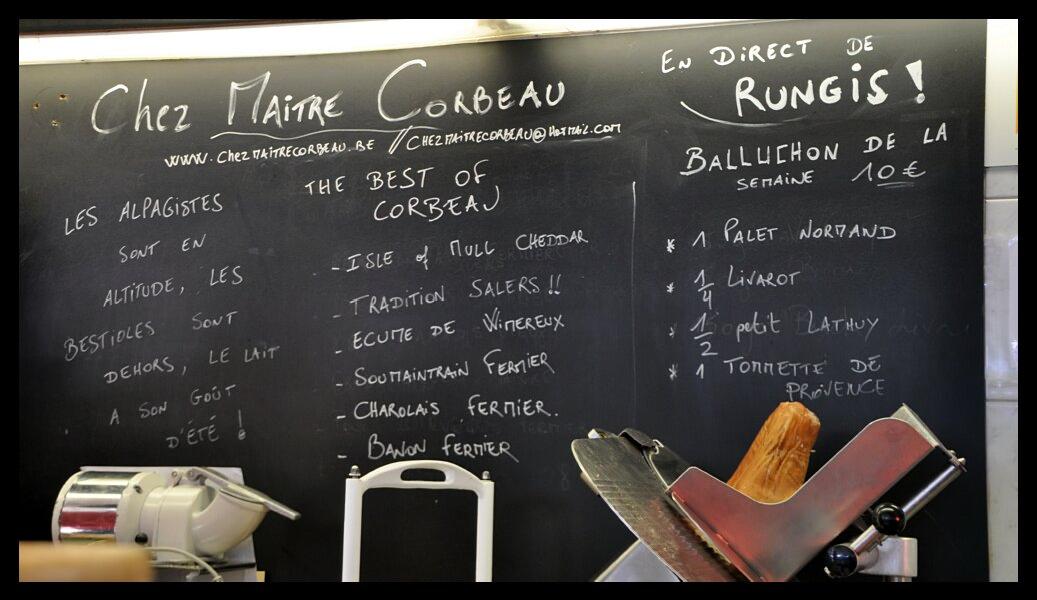 Chez Maitre Corbeau
www.chezmaitrecorbeau.be // chezmaitrecorbeau@hotmail.com
Les Alpagistes
sont en
altitude, les
bestioles sont
dehors, le lait
a son goût
d'été !
The Best of
Corbeau
- Isle of Mull Cheddar
- Tradition Salers !!
- Ecume de Wimereux
- Soumaintrain Fermier
- Charolais Fermier.
- Banon Fermier
En Direct de
Rungis !
Balluchon de la
semaine 10 €
* 1 Palet Normand
* 1/4 Livarot
* 1/2 petit Lathuy
* 1 Tommette de
Provence